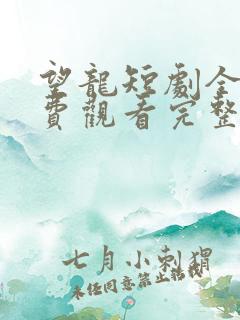 望龍短劇全
費觀看完整
七月小刺猬
未任同意禁止轉載